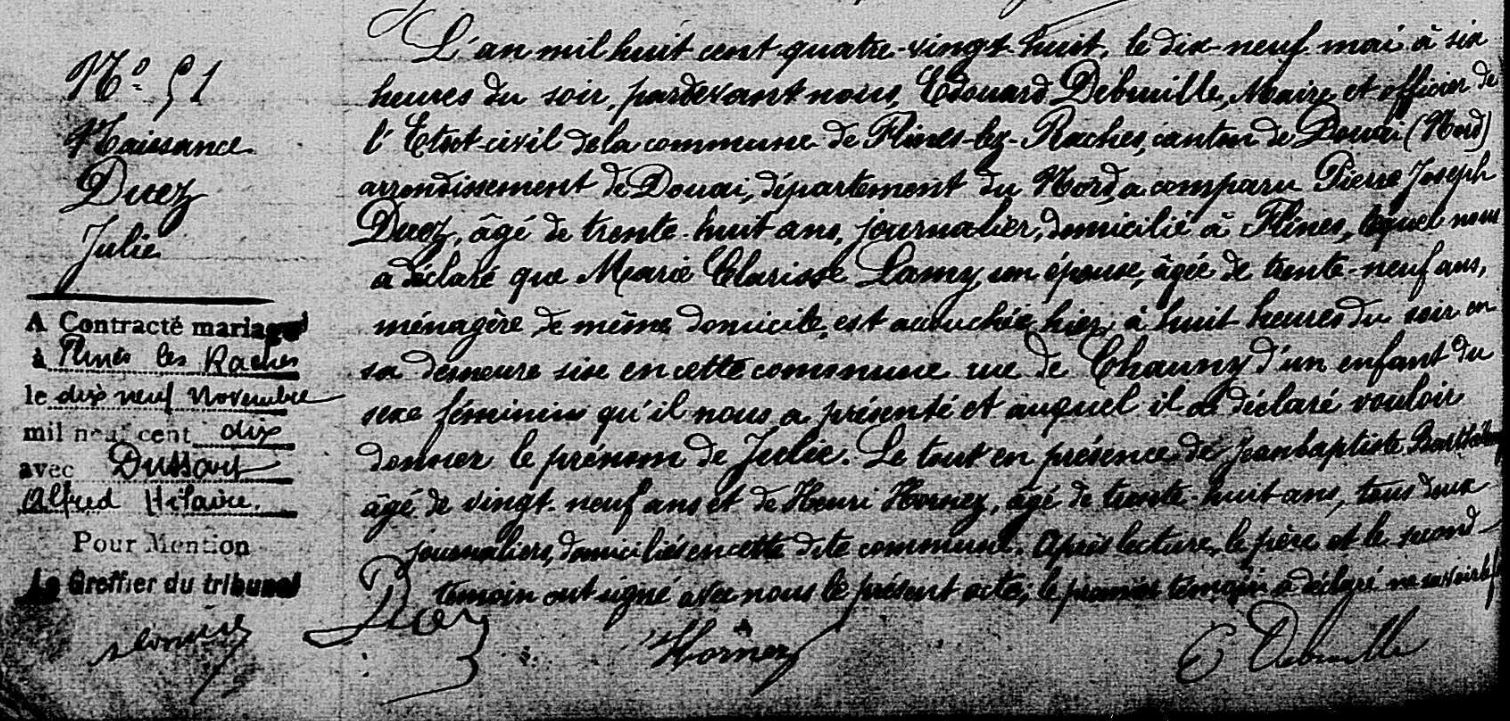 N.° 51
Naissance
Duez
Julie
A Contracté mariage
à Flines les Raches
le dix neuf Novembre
mil neuf cent dix
avec Dussart
Alfred Hilaire.
Pour Mention
Le Greffier du tribunal
L'an mil huit cent quatre-vingt-huit, le dix-neuf mai à six
heures du soir, pardevant nous, Edouard Debuille, Maire et officier de
l'Etat-civil de la commune de Flines-lez-Raches, canton de Douai (Nord)
arrondissement de Douai, département du Nord, a comparu Pierre Joseph
Duez, âgé de trente-huit ans, journalier, domicilié à Flines, lequel nous
a déclaré que Marie Clarisse Lamy, son épouse, âgée de trente-neuf ans,
ménagère de même domicile, est accouchée hier, à huit heures du soir en
sa demeure sise en cette commune rue de Chauny d'un enfant du
sexe féminin qu'il nous a présenté et auquel il a déclaré vouloir
donner le prénom de Julie. Le tout en présence de Jeanbaptiste
âgé de vingt-neuf ans et de Henri Hornez, âgé de trente-huit ans, tous deux
journaliers, domiciliés en cette dite commune. Après lecture, le père et le second
témoin ont signé avec nous le présent acte; le premier témoin a déclaré ne savoir
Duez
Hornez
E Debuille